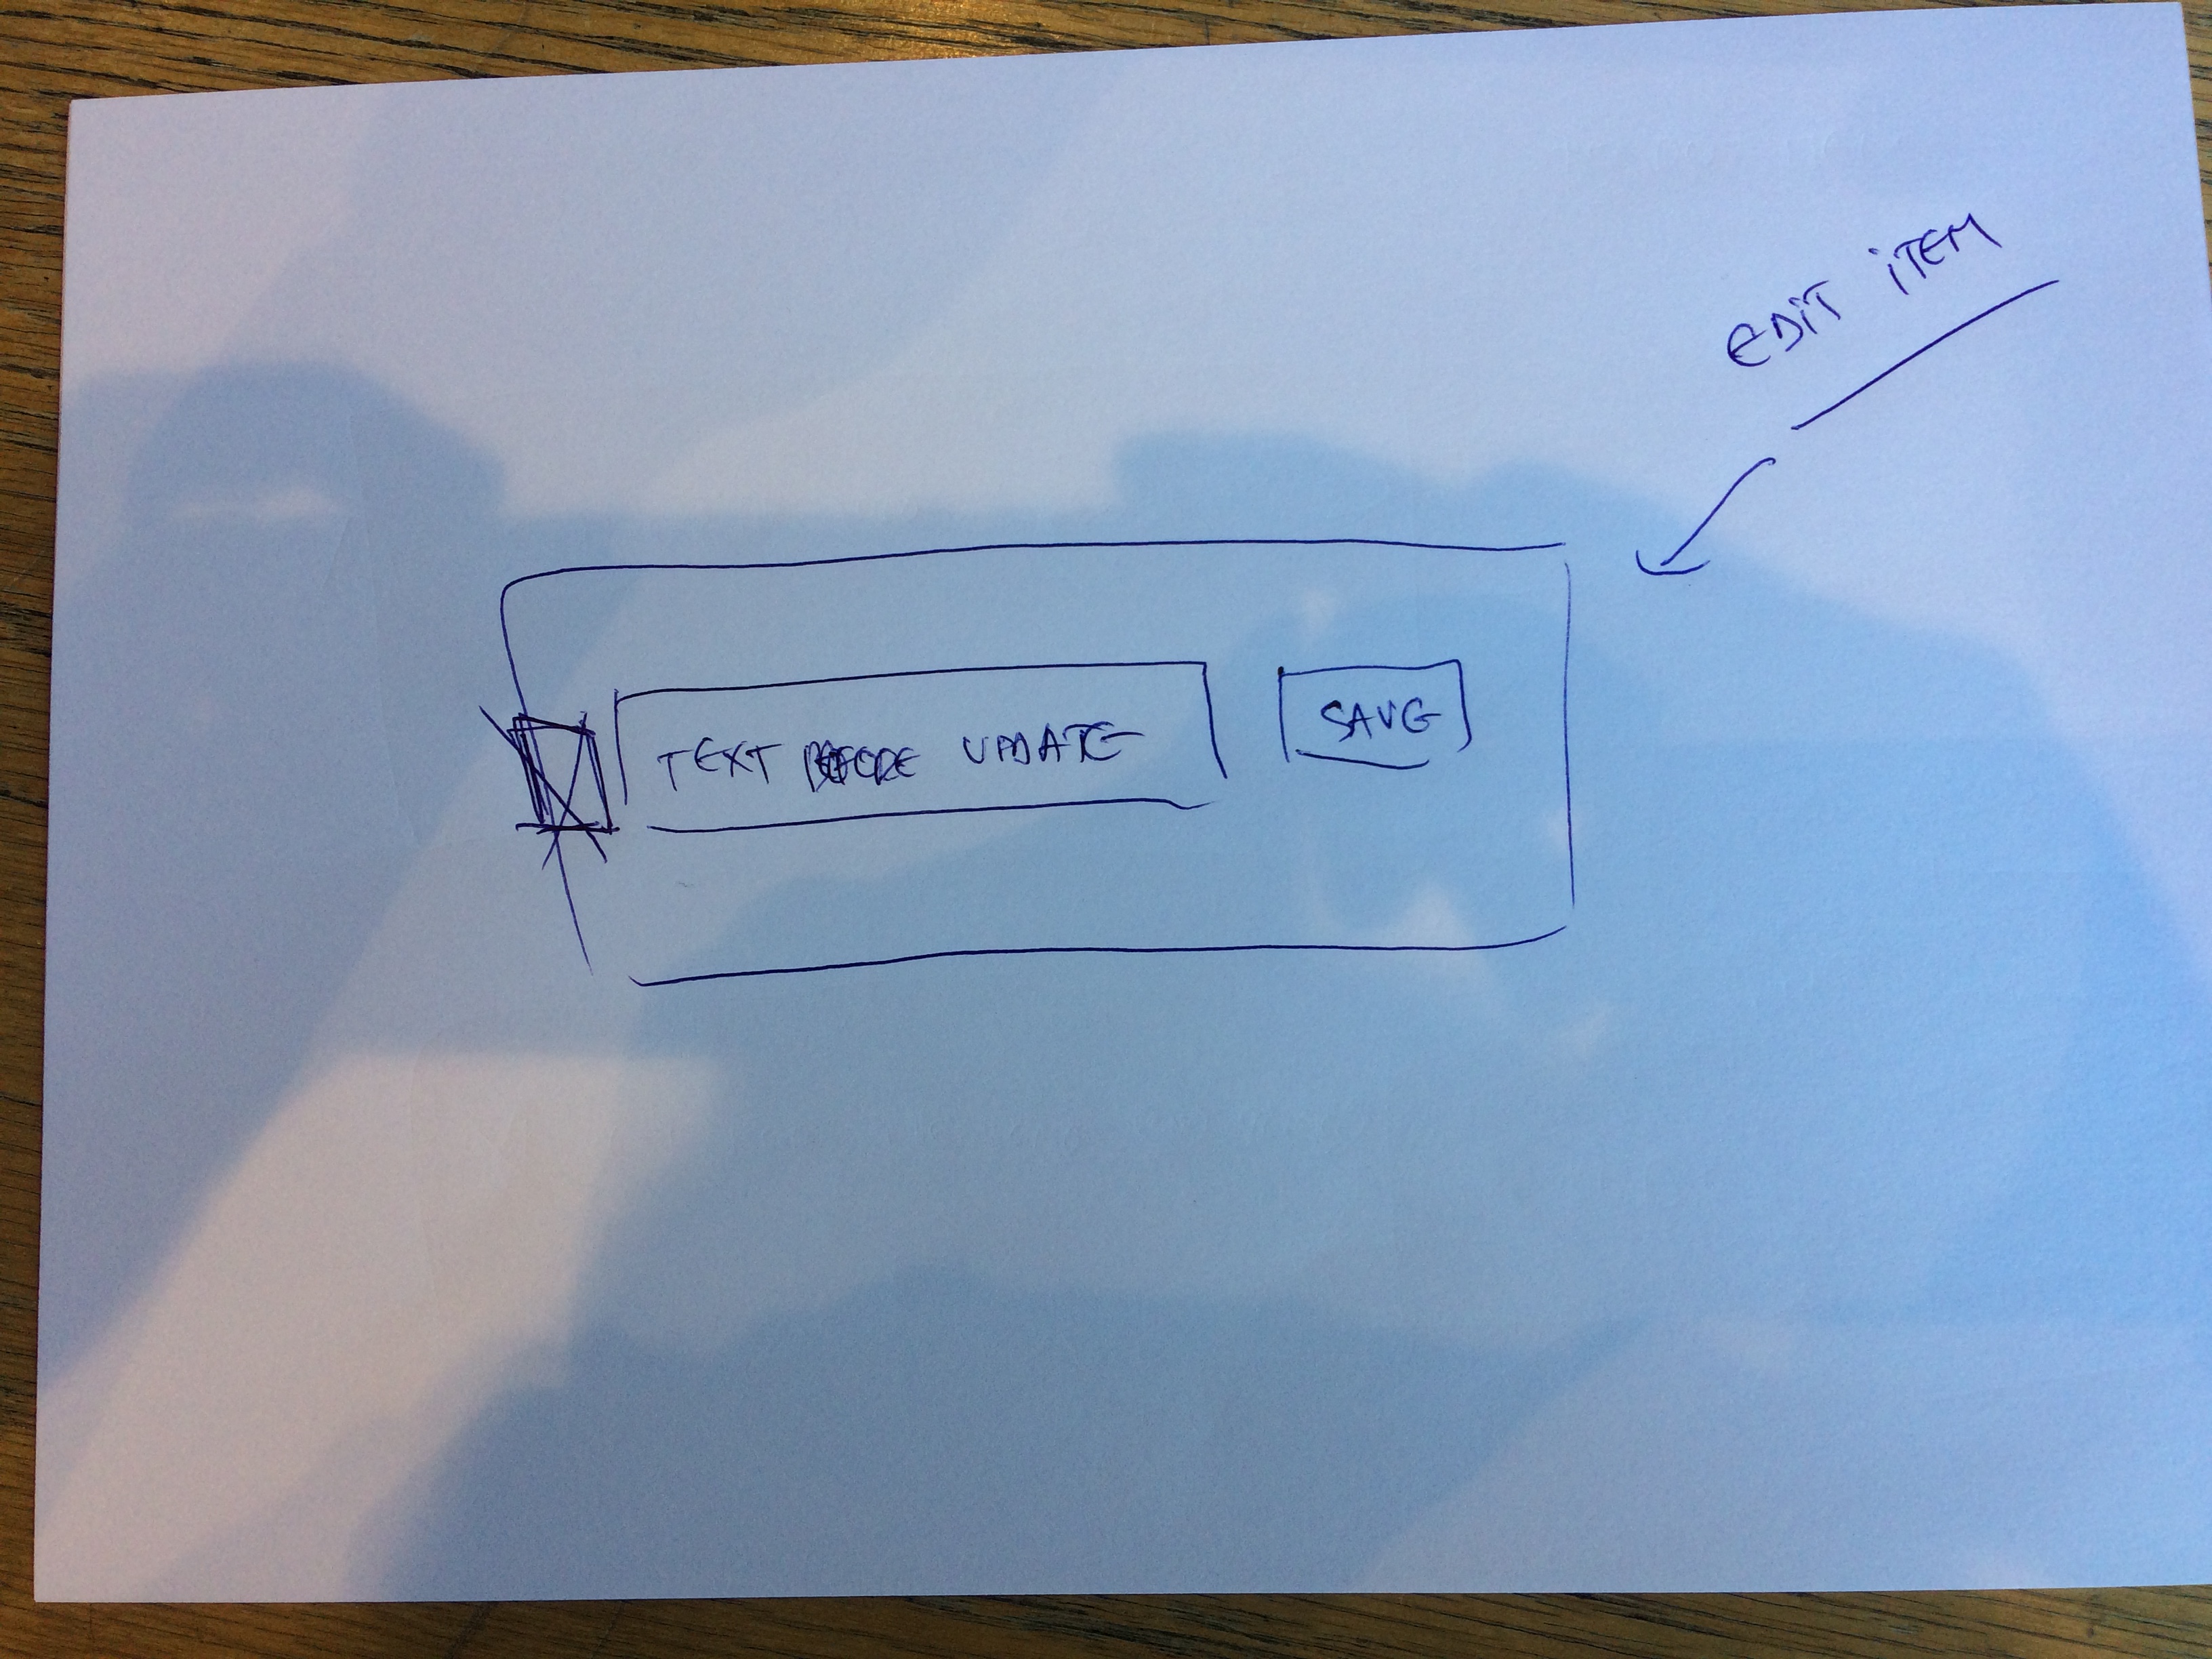 EDiT iTEM
TEXT BEFORE UPDATE
SAVE